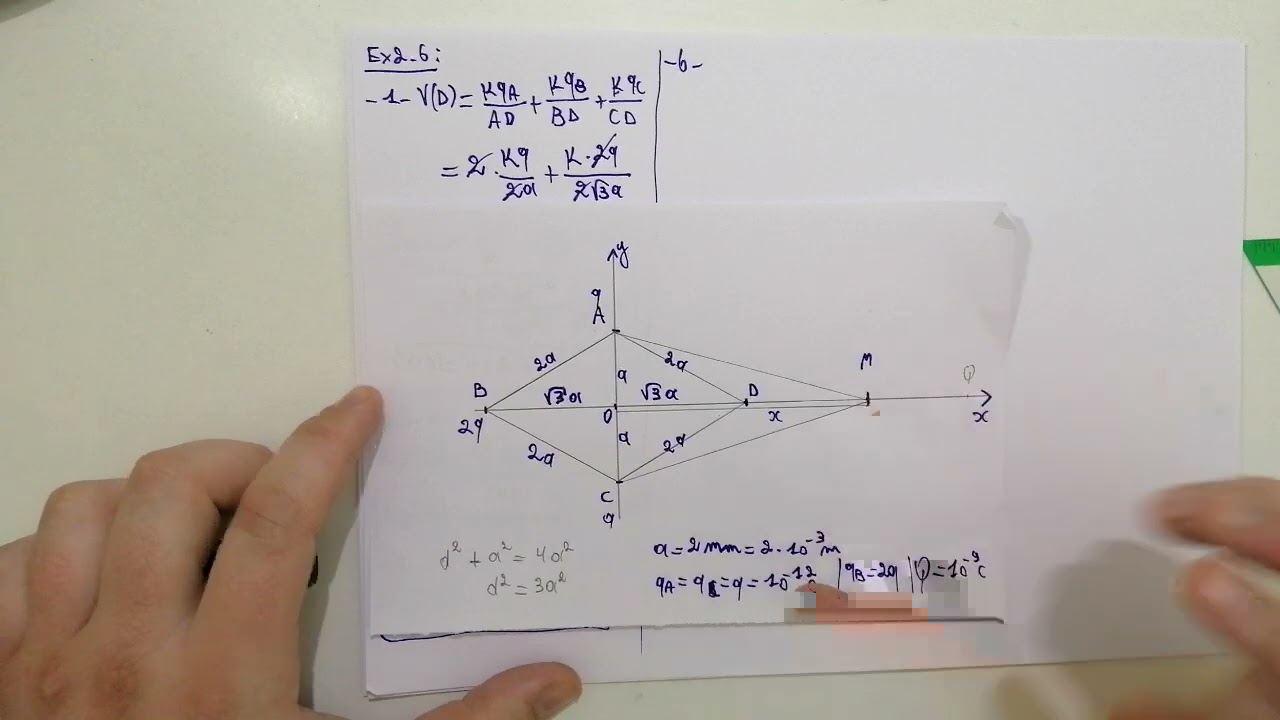 Ex2-6:
-1- V(D) = KqA/AD + KqB/BD + KqC/CD
= 2·Kq/2a + K·2q/2√3a
-6-
y
q
A
2a
2a
a
B
√3a
√3a
D
M
Q
2q
O
x
x
a
2a
2a
C
q
d² + a² = 4a²
d² = 3a²
a = 2mm = 2·10⁻³m
qA = q = q = 10⁻¹² | qB = 2q | Q = 10⁻⁹C